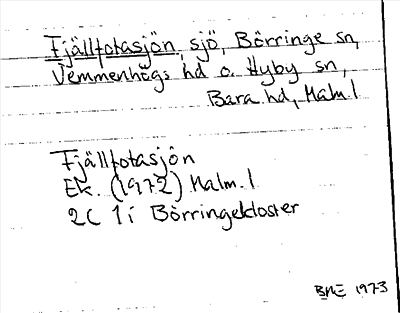 Fjällfotasjön, sjö, Börringe sn,
Vemmenhögs hd o. Hyby sn,
Bara hd, Malm.l
Fjällfotasjön
Ek. (1972) Malm.l
2C 1i Börringekloster
BME 1973